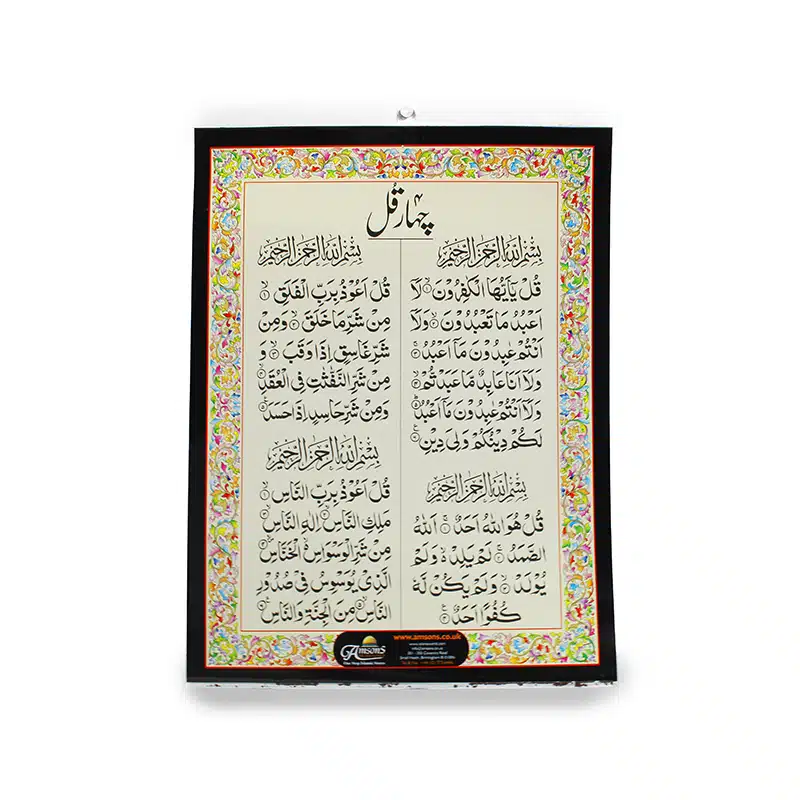 چہار قُل
بِسْمِ اللّٰهِ الرَّحْمٰنِ الرَّحِيْمِ
قُلْ يٰۤاَيُّهَا الْكٰفِرُوْنَ ۙ۱ لَاۤ
اَعْبُدُ مَا تَعْبُدُوْنَ ۙ۲ وَلَاۤ
اَنْتُمْ عٰبِدُوْنَ مَاۤ اَعْبُدُ ۚ۳
وَلَاۤ اَنَا عَابِدٌ مَّا عَبَدْتُّمْ ۙ۴
وَلَاۤ اَنْتُمْ عٰبِدُوْنَ مَاۤ اَعْبُدُ ؕ۵
لَكُمْ دِيْنُكُمْ وَلِىَ دِيْنِ ۶
بِسْمِ اللّٰهِ الرَّحْمٰنِ الرَّحِيْمِ
قُلْ هُوَ اللّٰهُ اَحَدٌ ۚ۱ اَللّٰهُ
الصَّمَدُ ۚ۲ لَمْ يَلِدْ ۙ۬ وَلَمْ
يُوْلَدْ ۙ۳ وَلَمْ يَكُنْ لَّهٗ
كُفُوًا اَحَدٌ ۴
بِسْمِ اللّٰهِ الرَّحْمٰنِ الرَّحِيْمِ
قُلْ اَعُوْذُ بِرَبِّ الْفَلَقِ ۙ۱
مِنْ شَرِّ مَا خَلَقَ ۙ۲ وَمِنْ
شَرِّ غَاسِقٍ اِذَا وَقَبَ ۙ۳ وَ
مِنْ شَرِّ النَّفّٰثٰتِ فِى الْعُقَدِ ۙ۴
وَمِنْ شَرِّ حَاسِدٍ اِذَا حَسَدَ ۵
بِسْمِ اللّٰهِ الرَّحْمٰنِ الرَّحِيْمِ
قُلْ اَعُوْذُ بِرَبِّ النَّاسِ ۙ۱
مَلِكِ النَّاسِ ۙ۲ اِلٰهِ النَّاسِ ۙ۳
مِنْ شَرِّ الْوَسْوَاسِ ۙ۬ الْخَنَّاسِ ۙ۴
الَّذِىْ يُوَسْوِسُ فِىْ صُدُوْرِ
النَّاسِ ۙ۵ مِنَ الْجِنَّةِ وَالنَّاسِ ۶
Amsons
One Stop Islamic Store
www.amsons.co.uk